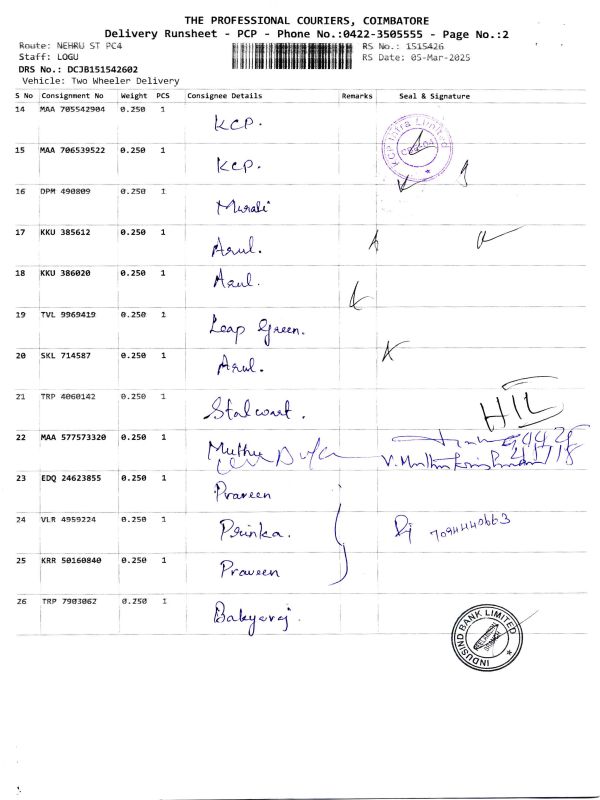 THE PROFESSIONAL COURIERS, COIMBATORE
Delivery Runsheet - PCP - Phone No.:0422-3505555 - Page No.:2
Route: NEHRU ST PC4 RS No.: 1515426
Staff: LOGU RS Date: 05-Mar-2025
DRS No.: DCJB151542602
Vehicle: Two Wheeler Delivery
S No Consignment No Weight PCS Consignee Details Remarks Seal & Signature
14 MAA 705542904 0.250 1 KCP.
KCP Infra Limited
15 MAA 706539522 0.250 1 KCP.
16 DPM 490809 0.250 1 Murali
17 KKU 385612 0.250 1 Arul.
18 KKU 386020 0.250 1 Arul.
19 TVL 9969419 0.250 1 Leap Green.
20 SKL 714587 0.250 1 Arul.
21 TRP 4060142 0.250 1 Stalwart. HIL
22 MAA 577573320 0.250 1 Muthu
V. Muthukrishnan
23 EDQ 24623855 0.250 1 Praveen
24 VLR 4959224 0.250 1 Prinka. 7094440663
25 KRR 50160840 0.250 1 Praveen
26 TRP 7903062 0.250 1 Bakyaraj.
INDUSIND BANK LIMITED